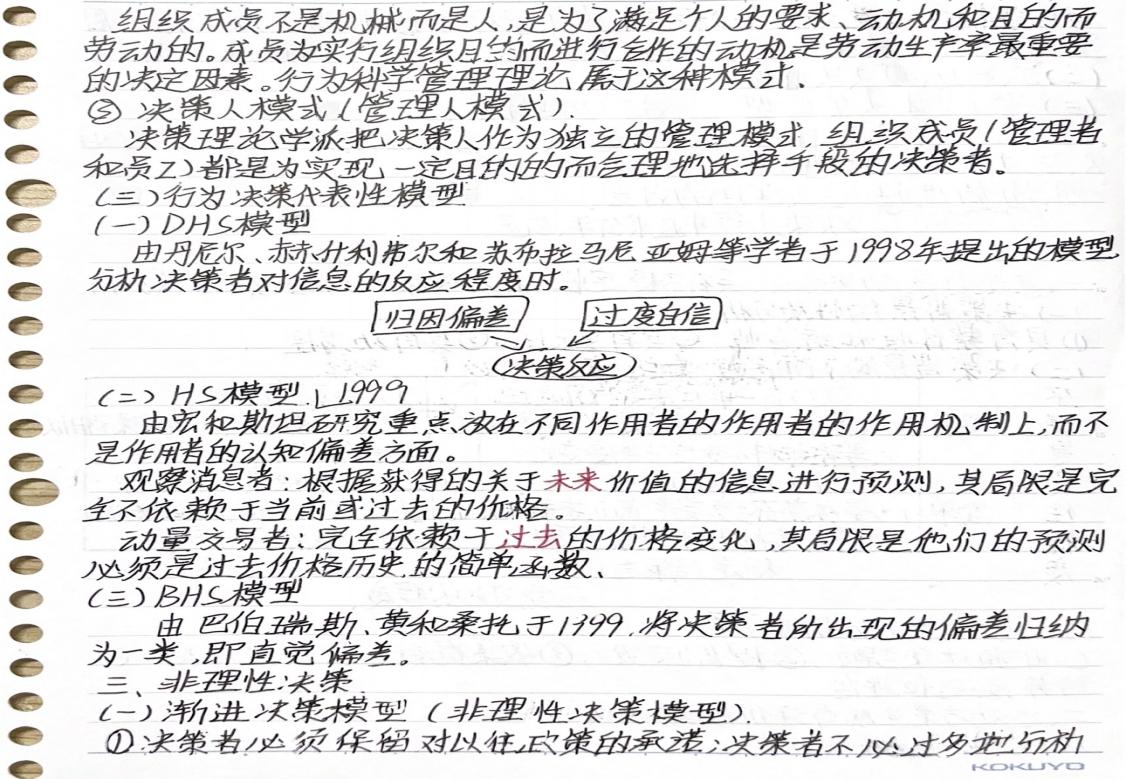 组织成员不是机械而是人,是为了满足个人的要求、动机和目的而
劳动的。成员为实行组织目的而进行合作的动机是劳动生产率最重要
的决定因素。行为科学管理理论属于这种模式.
③ 决策人模式(管理人模式).
决策理论学派把决策人作为独立的管理模式,组织成员(管理者
和员工)都是为实现一定目的的而合理地选择手段的决策者。
(三)行为决策代表性模型
(一)DHS模型
由丹尼尔、赫什利弗尔和苏布拉马尼亚姆等学者于1998年提出的模型
分析决策者对信息的反应程度时。
归因偏差 过度自信
决策反应
(二) HS模型 1999
由宏和斯坦研究重点放在不同作用者的作用者的作用机制上,而不
是作用者的认知偏差方面。
观察消息者:根据获得的关于未来价值的信息进行预测,其局限是完
全不依赖于当前或过去的价格。
动量交易者:完全依赖于过去的价格变化,其局限是他们的预测
必须是过去价格历史的简单函数、
(三)BHS模型
由巴伯瑞斯、黄和桑托于1999.将决策者所出现的偏差归纳
为一类,即直觉偏差。
三、非理性决策
(一)渐进决策模型(非理性决策模型).
①决策者必须保留对以往政策的承诺;决策者不必过多地分析
KOKUYO